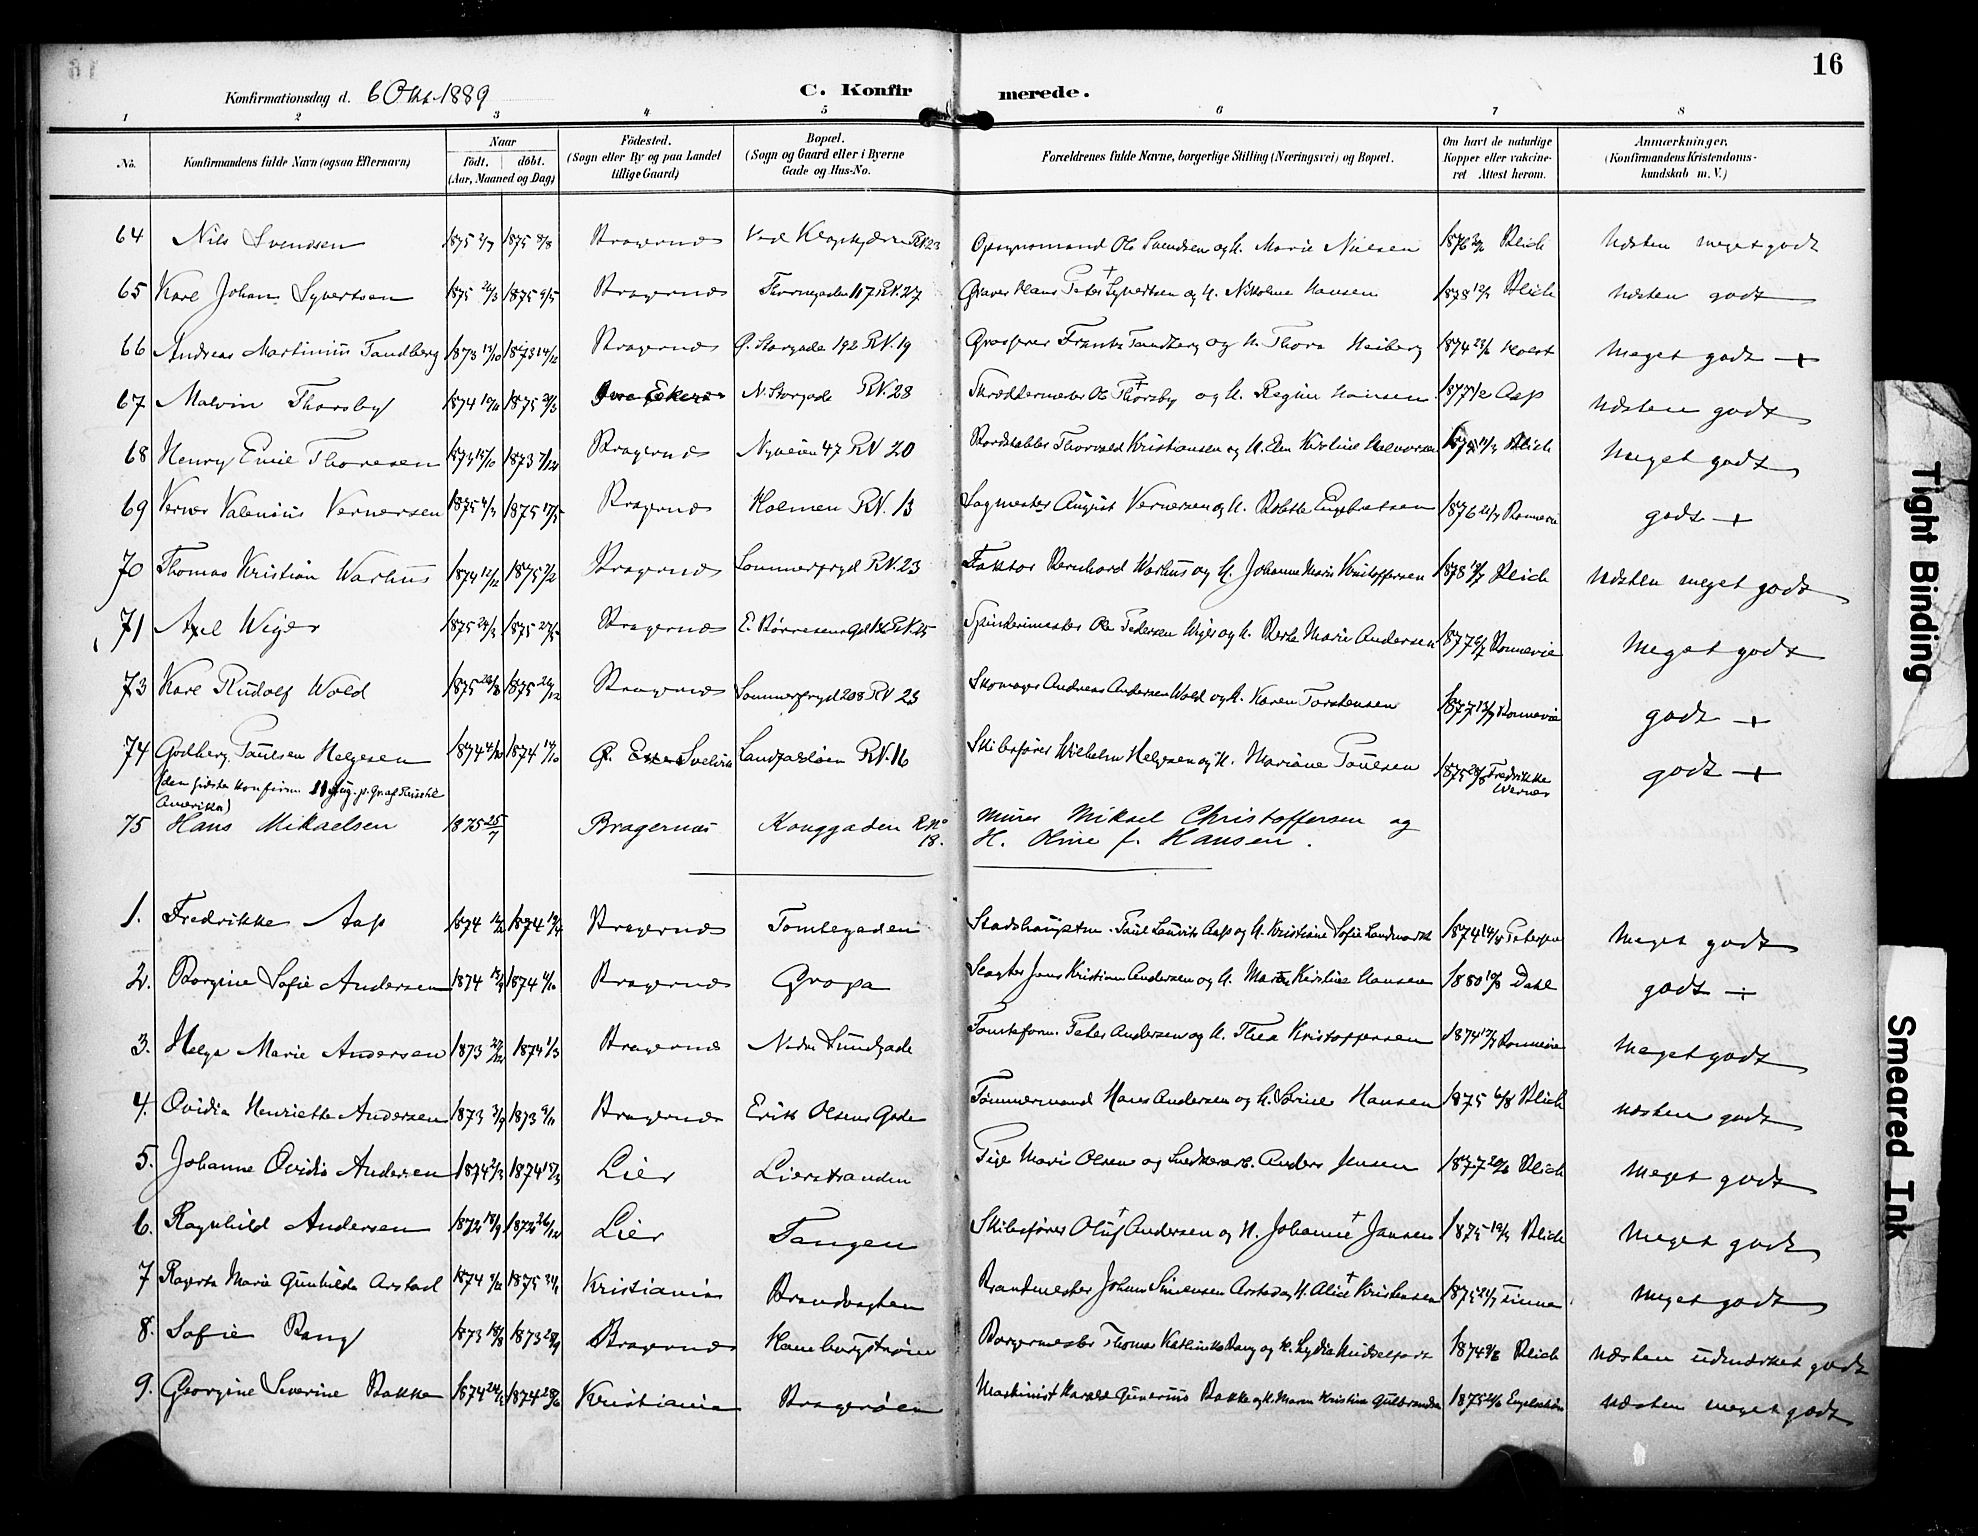 16
Konfirmationsdag d. 6 Okt. 1889
C. Konfirmerede.
1 2 3 4 5 6 7 8
No. Konfirmandens fulde Navn (ogsaa Efternavn) Naar født. døbt. (Aar, Maaned og Dag) Födested. (Sogn eller By og paa Landet tillige Gaard) Bopæl. (Sogn og Gaard eller i Byerne Gade og Hus-No. Forældrenes fulde Navne, borgerlige Stilling (Næringsvei) og Bopæl. Om havt de naturlige Kopper eller vakcineret Attest herom. Anmærkninger. (Konfirmandens Kristendomskundskab m. V.)
64 Nils Svendsen 1875 2/7 1875 8/8 Bragernæs R.N. 23 Ole Svendsen og H. Marie Nielsen 1876 Blich Næsten meget godt
65 Karl Johan Syvertsen 1875 1875 9/5 Bragernæs 117 R.N. 27 Graver Hans Peter Syvertsen og H. Nikoline Hansen 1878 Blich Næsten godt
66 Andreas Martinius Tandberg 1873 1873 14/12 Bragernæs Ø. Storgade 192 R.N. 19 Frantz Tandberg og H. Thora Heiberg 1874 23/6 Holst Meget godt +
67 Malvin Thorsby 1874 1875 Øvre Eker N. Storgade R.N. 28 Skræddermester Ole Thorsby og H. Regine Hansen 1877 Asp Næsten godt
68 Henry Emil Thoresen 1873 1873 7/12 Bragernæs Nyveien 47 R.N. 20 Thorvald Kristiansen og H. Elen Kirstine Halvorsen Blich Meget godt
69 Verner Valenius Vernersen 1875 4/3 1875 17/5 Bragernæs Holmen R.N. 13 Sagmester August Vernersen og H. Engebretsen 1876 Bonnevie godt +
70 Thomas Kristian Warhus 1874 12/12 1875 7/2 Bragernæs Sommerfryd R.N. 23 Faktor Bernhard Warhus og H. Johanne Marie Kristoffersen 1878 Blich Næsten meget godt
71 Axel Wiger 1875 24/3 1875 27/5 Bragernæs Spinderimester Ole Pedersen Wiger og H. Berte Marie Andersen 1877 Bonnevie Meget godt
73 Karl Rudolf Wold 1875 1875 26/12 Bragernæs Sommerfryd 208 R.N. 23 Skomager Andreas Andersen Wold og H. Karen Torstensen 1877 13/7 Bonnevie godt +
74 Godberg Paulsen Helgesen 1874 4/10 1874 Svelvik Landfaldøen R.N. 16 Skibsfører Wilhelm Helgesen og H. Mariane Paulsen 1875 Fredrikke Werner godt +
(den sidste konfirm. 11 Aug. p. Graf
Amerika)
75 Hans Mikaelsen 1875 25/7 Bragernæs Konggaden R.No 18. Murer Mikael Christoffersen og
H. Oline f. Hansen.
1. Fredrikke Asp 1874 1874 Bragernæs Tomtegaden Stadshauptm. Paul Lauritz Asp og H. Kristiane Sofie Landmark 1874 Petersen Meget godt
2. Borgine Sofie Andersen 1874 1874 4/10 Bragernæs Gropa Slagter Jens Kristian Andersen og H. Maren Kirstine Hansen 1880 Dahl godt +
3. Helga Marie Andersen 1873 1874 1/3 Bragernæs Nedre Sundgade Tomteform. Peter Andersen og H. Thea Kristoffersen 1874 Bonnevie Meget godt
4. Ovidia Henriette Andersen 1873 3/9 1873 9/11 Bragernæs Erik Olsens Gade Tømmermand Hans Andersen og H. Sørine Hansen 1875 6/8 Blich Næsten godt
5. Johanne Ovidia Andersen 1874 1874 Lier Lierstranden Pige Mari Olsen og Snedkerarb. Anders Jensen 1877 Blich Meget godt
6. Ragnhild Andersen 1872 18/9 1872 26/12 Lier Tangen Skibsfører Oluf Andersen og H. Johanne Jansen 1875 Blich Meget godt
7 Ragna Marie Gunhilda Arstad 1874 1875 Kristiania Brandvagten Brandmester Johan Simensen Arstad og H. Alice Kristensen 1875 Finne Meget godt
8. Sofie Bang 1873 18/8 1873 28/9 Bragernæs Hamborgstrøm Borgermester Thomas Kathinko Bang og H. Lydia 1874 Blich Næsten udmærket godt
9. Georgine Severine Bakke 1874 1874 28/6 Kristiania Bragerøen Maskinist Harald Gunerius Bakke og H. Maren Kristine Gulbrandsen 1875 Næsten meget godt
Tight Binding
Smeared Ink